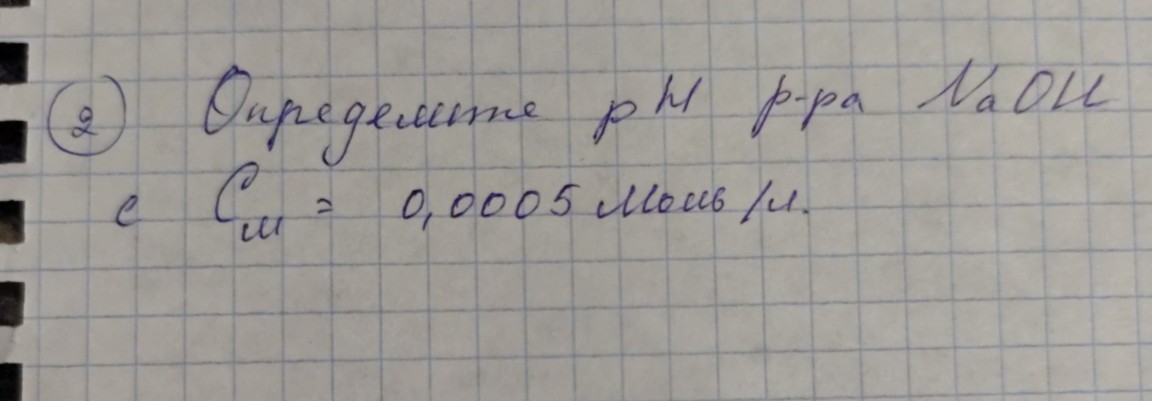 2 Определите pH р-ра NaOH
с Cм = 0,0005 моль/л.